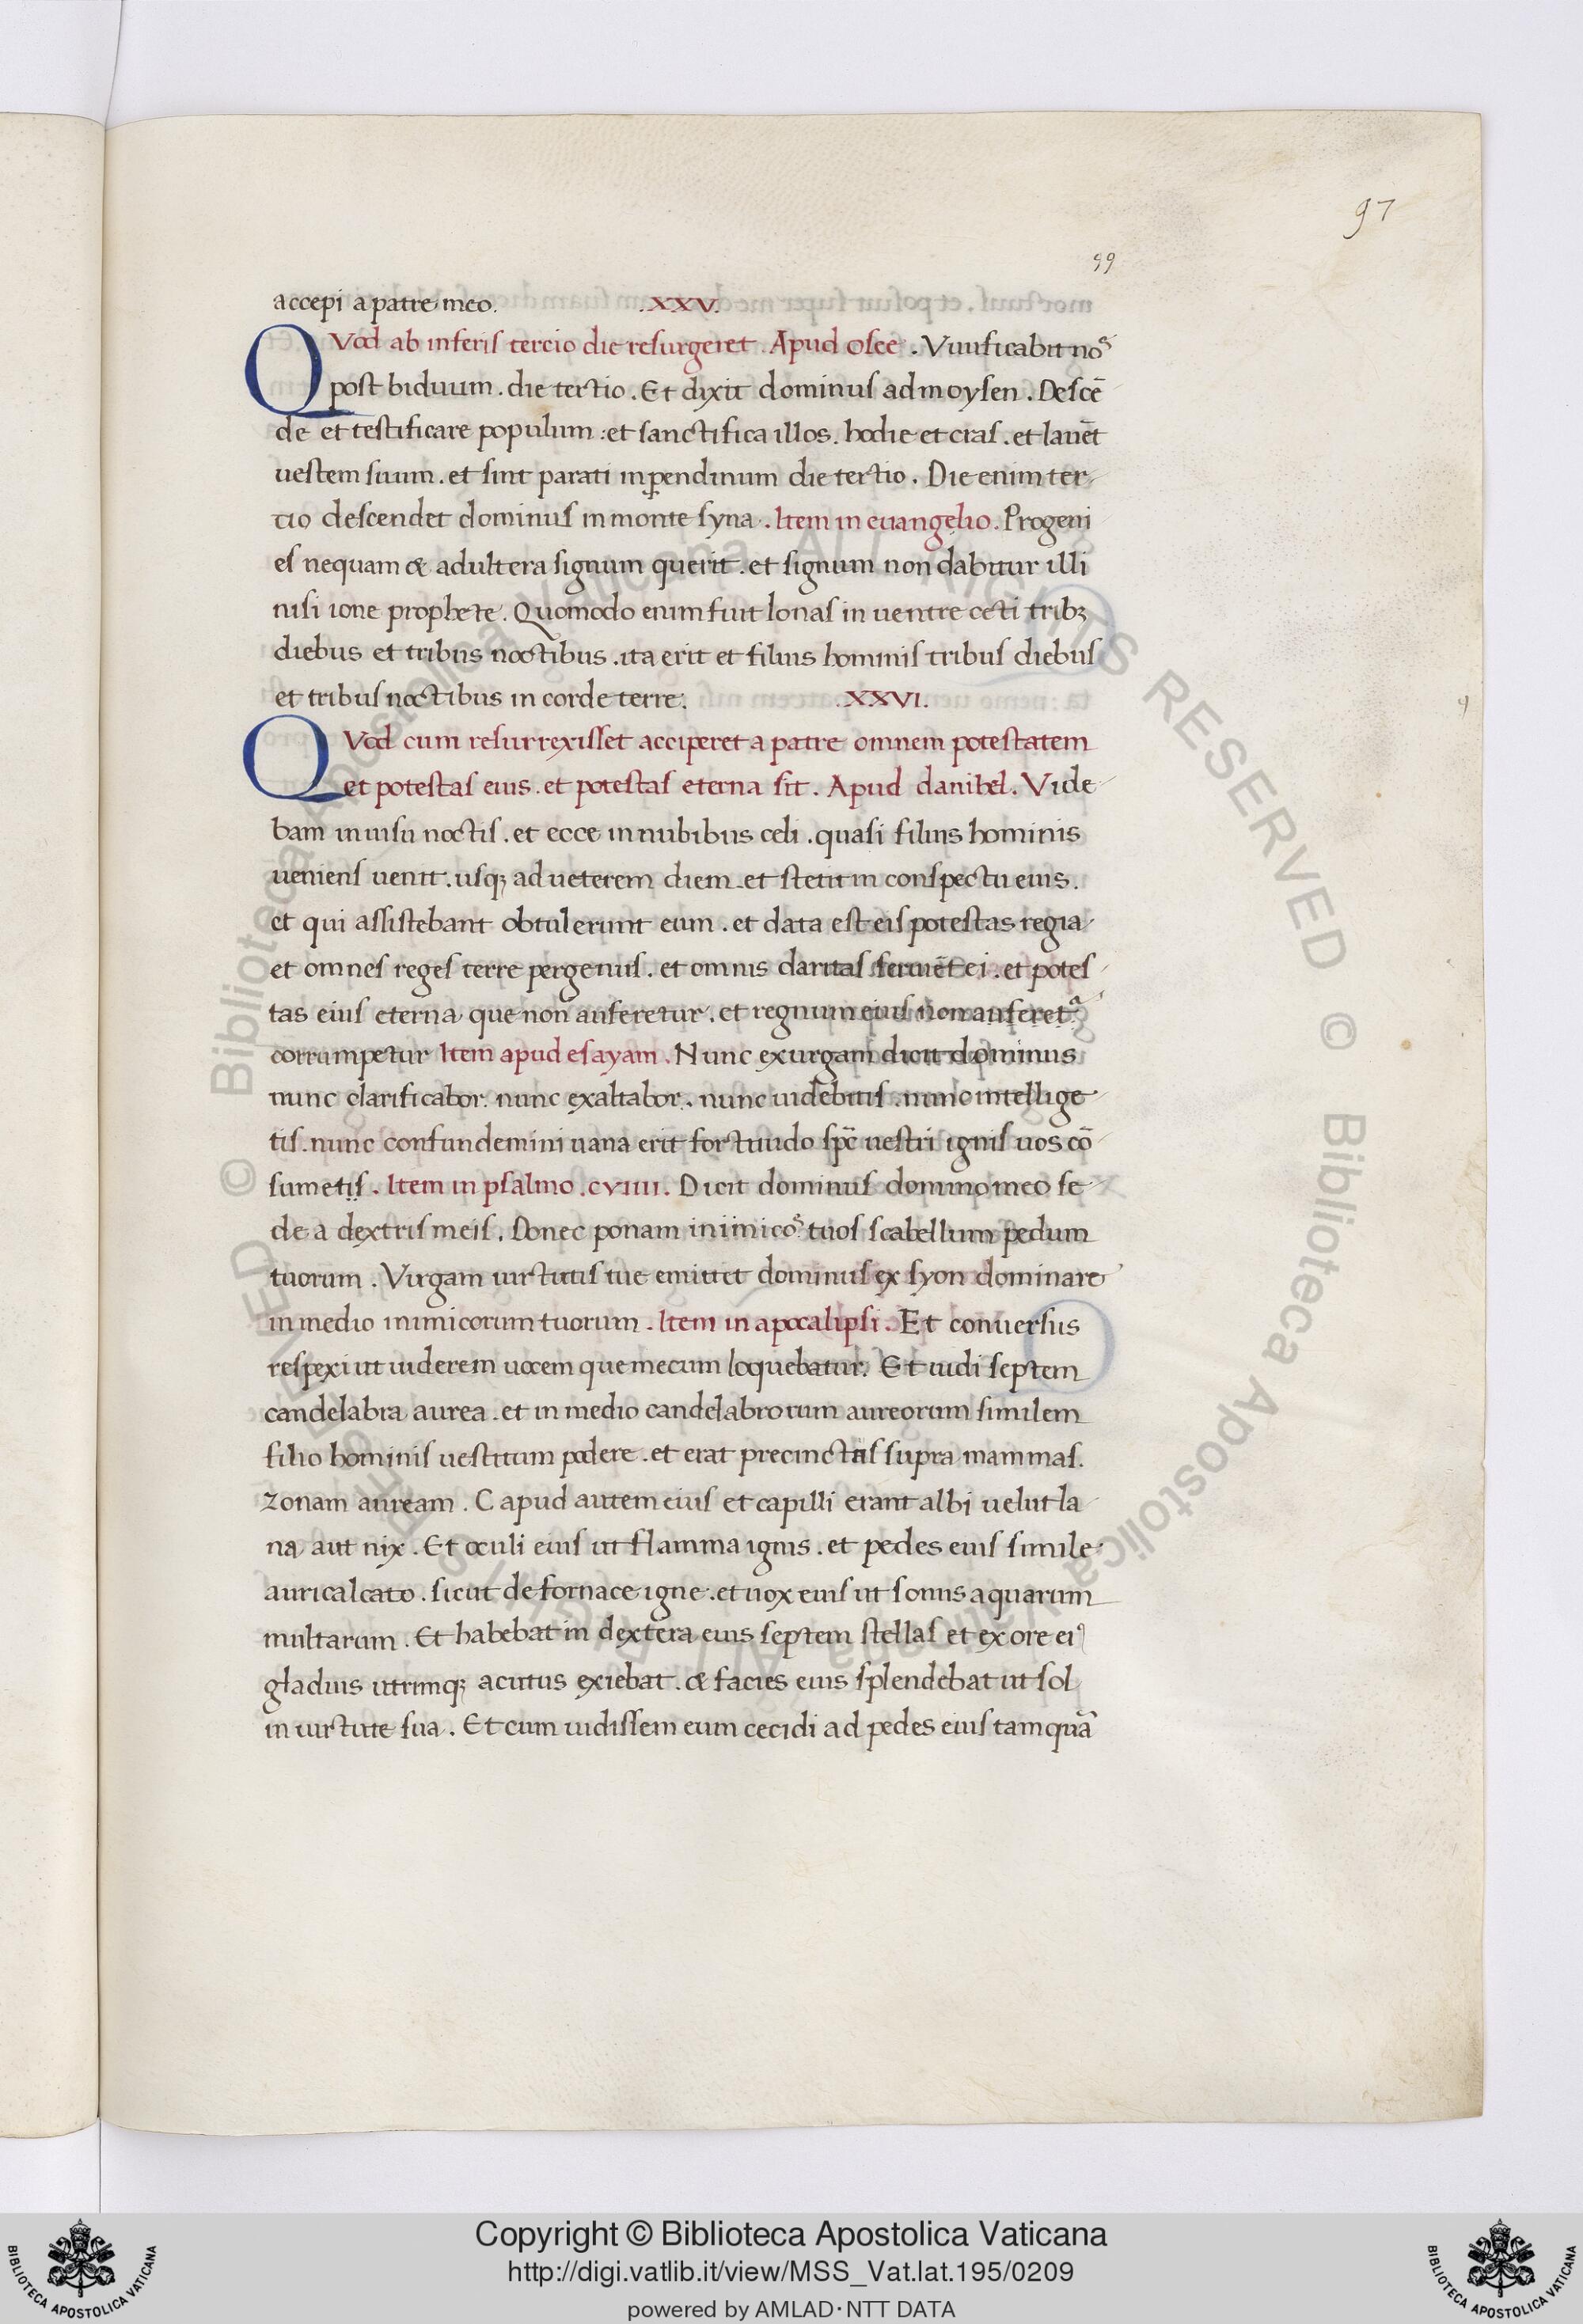 97
99
accepi a patre meo. .XXV.
QVod ab inferis tercio die resurgeret. Apud osee. Viuificabit nos
post biduum. die tertio. Et dixit dominus ad moysen. Descē
de et testificare populum: et sanctifica illos. hodie et cras. et lauēt
uestem suum. et sint parati in ꝑendinum die tertio. Die enim ter
tio descendet dominus in monte syna. Item in euangelio. Progeni
es nequam & adultera signum querit. et signum non dabitur illi
nisi ione prophete. Quomodo enim fuit Ionas in uentre ceti tribꝫ
diebus et tribus noctibus. ita erit et filius hominis tribus diebus
et tribus noctibus in corde terre: .XXVI.
QVod cum resurrexisset acciperet a patre omnem potestatem
et potestas eius. et potestas eterna sit. Apud danihel. Vide
bam in uisu noctis. et ecce in nubibus celi. quasi filius hominis
ueniens uenit. usqꝫ ad ueterem diem. et stetit in conspectu eius.
et qui assistebant obtulerunt eum. et data est eis potestas regia
et omnes reges terre per genus. et omnis claritas seruēt ei. et potes
tas eius eterna que non auferetur. et regnum eius non auferet
corrumpetur Item apud esayam. Nunc exurgam dicit dominus
nunc clarificabor. nunc exaltabor. nunc uidebitis. nunc intellige
tis. nunc confundemini uana erit fortitudo spc̄ uestri ignis uos cō
sumetis. Item in psalmo .cviiii. Dicit dominus domino meo se
de a dextris meis. Donec ponam inimicos tuos scabellum pedum
tuorum. Virgam uirtutis tue emittet dominus ex syon dominare
in medio inimicorum tuorum. Item in apocalipsi. Et conuersus
respexi ut uiderem uocem que mecum loquebatur. Et uidi septem
candelabra aurea. et in medio candelabrorum aureorum similem
filio hominis uestitum podere. et erat precinctus supra mammas.
zonam auream. Capud autem eius et capilli erant albi uelut la
na aut nix. Et oculi eius ut flamma ignis. et pedes eius simile
auricalcato. sicut de fornace igne. et uox eius ut sonus aquarum
multarum. Et habebat in dextera eius septem stellas et ex ore eiꝰ
gladius utrimqꝫ acutus exiebat. & facies eius splendebat ut sol
in uirtute sua. Et cum uidissem eum cecidi ad pedes eius tamquā
© Biblioteca Apostolica Vaticana ALL RIGHTS RESERVED
© Biblioteca Apostolica Vaticana ALL RIGHTS RESERVED
Copyright © Biblioteca Apostolica Vaticana
http://digi.vatlib.it/view/MSS_Vat.lat.195/0209
powered by AMLAD·NTT DATA
BIBLIOTECA APOSTOLICA VATICANA
BIBLIOTECA APOSTOLICA VATICANA